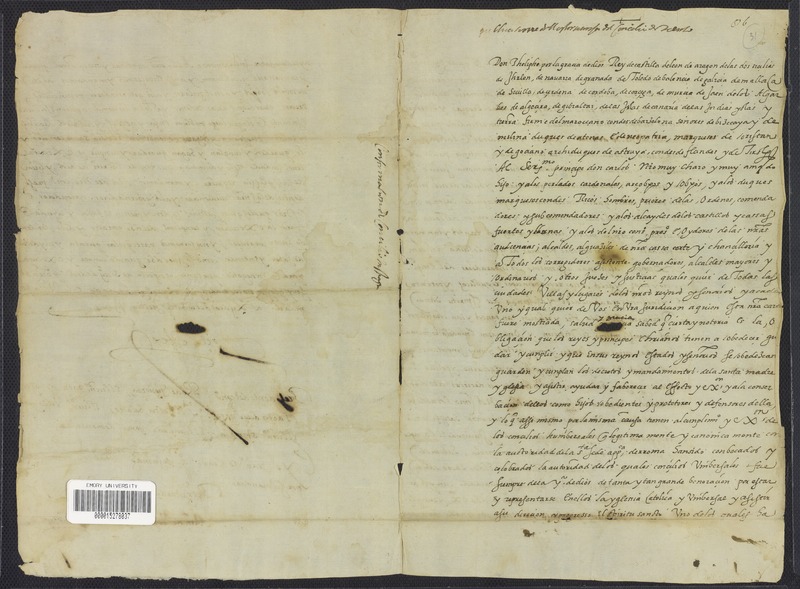 EMORY UNIVERSITY
000015278037
confirmacion del concilio
56
31
Don Phelippe por la gracia de Dios Rey de castilla de leon de aragon de las dos sicilias
de Jhrlen, de navarra de granada de Toledo de balencia de galizia de mallorca
de Sevilla de cerdena de cordoba, de corcega, de murcia de Jaen de los Algar
bes de algezira, de gibraltar, de las Islas de canaria de las Indias yslas y
tierra firme del mar oceano conde de barcelona señores de bizcaya y de
molina duques de atenas E de neopatria, marqueses de oristan
y de goçiano archiduques de austria, condes de flandes y de Tirol
Al Sermo principe don carlos nro muy charo y muy amado
hijo y a los perlados cardenales, arçobispos y obispos, y a los duques
marqueses condes Ricos hombres, priores de las Ordenes, comenda
dores y subcomendadores y a los alcaydes de los castillos y casas
fuertes y llanas y a los del nro consº presº E Oydores de las nras
audiencias, alcaldes, alguaziles de nra casa corte y chancilleria y
a Todos los corregidores asistente gobernadores, alcaldes mayores y
ordinarios y otros Juezes y Justicias quales quier de Todas las
ciudades Villas y lugares de los nros reynos y señorios y a cada
Uno y qual quier de Vos En Vra Jurisdicion a quien esta nra carta
fuere mostrada, salud y gracia sabed q cierta y notoria es la O
bligaçion que los reyes y principes christianos tienen a obedecer guar
dar y cumplir y que En sus reynos Estados y señorios se obedezcan
guarden y cumplan los decretos y mandamientos de la santa madre
yglesia y asistir, ayudar y faborecer al Effecto y exon y a la conser
bacion dellos como hijos obedientes y protetores y defensores della
y lo q assi mismo por la misma causa tienen al cumplimiº y exon de
los concilios Universales q legitima mente y canonica mente con
la authoridad de la sta sede appª de rroma han sido convocados y
celebrados la autoridad de los quales concilios Universales fue
siempre de la ygª de dios de tanta y tan grande beneracion por estar
y representarse En ellos la yglesia Catolica y Universal y assistir
a su direcion y progreso El Espiritu sancto Uno de los quales ha